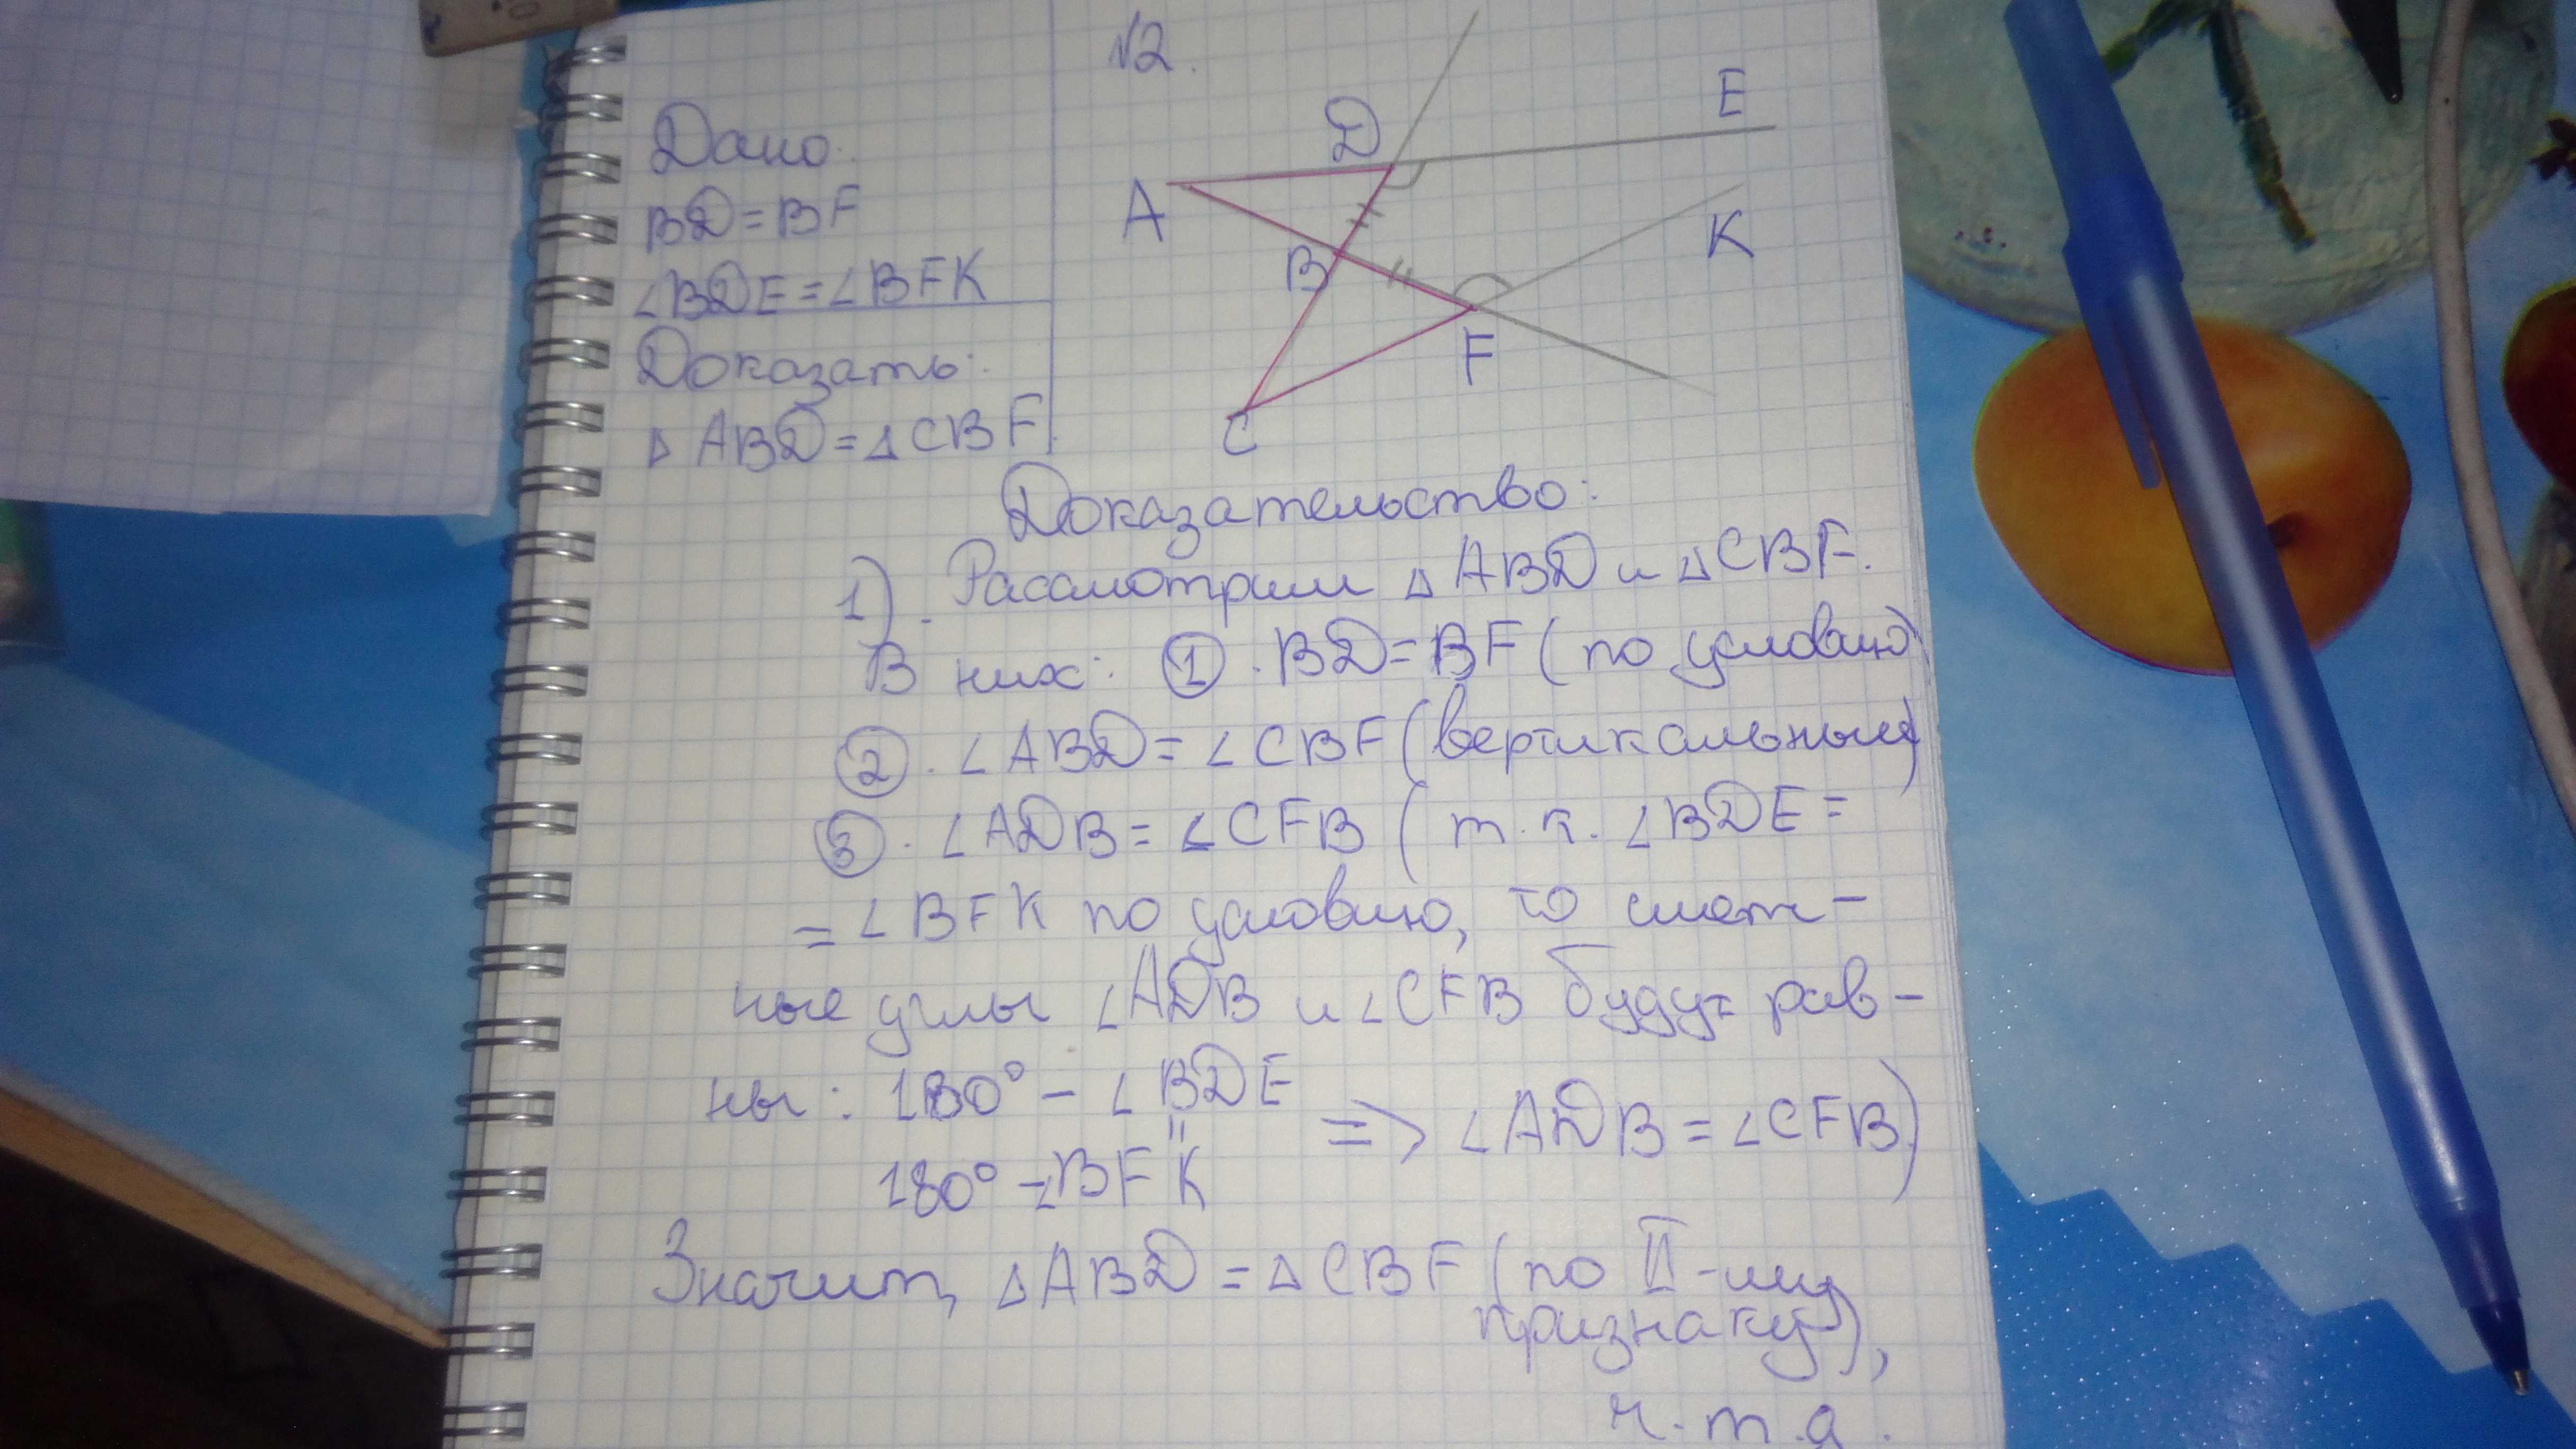 №2.
Дано:
BD=BF
∠BDE=∠BFK
Доказать:
△ABD=△CBF
D
E
A
K
B
F
C
Доказательство:
1). Рассмотрим △ABD и △CBF.
В них: ①. BD=BF (по условию)
②. ∠ABD=∠CBF (вертикальные)
③. ∠ADB=∠CFB (т.к. ∠BDE=
=∠BFK по условию, то смеж-
ные углы ∠ADB и ∠CFB будут рав-
ны: 180°-∠BDE
=> ∠ADB=∠CFB)
180°-∠BFK
Значит, △ABD=△CBF (по II-му
признаку),
ч.т.д.